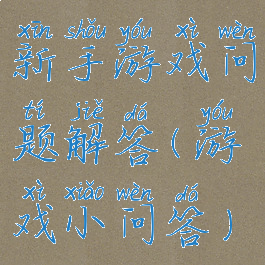 xīn shǒu yóu xì wèn
新手游戏问
tí jiě dá yóu
题解答(游
xì xiǎo wèn dá
戏小问答)